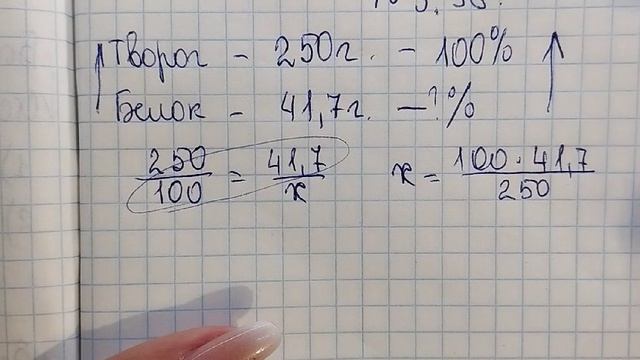 Творог - 250г. - 100%
Белок - 41,7г. - ?%
250/100 = 41,7/x x = 100·41,7/250